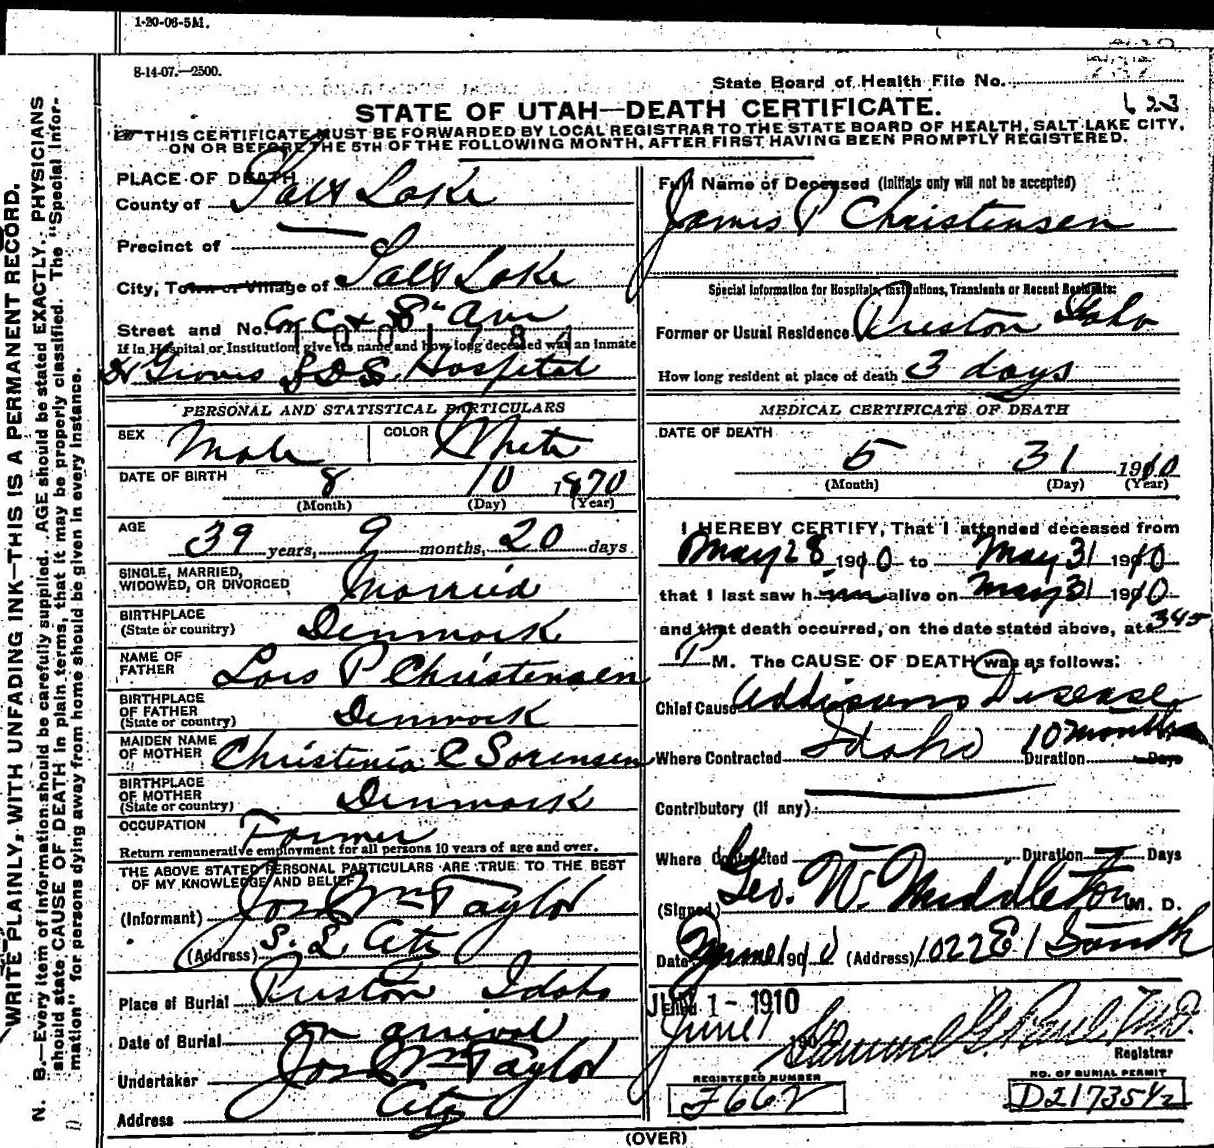 1-20-06-5M.
8-14-07.—2500.
State Board of Health File No.
STATE OF UTAH—DEATH CERTIFICATE.
623
THIS CERTIFICATE MUST BE FORWARDED BY LOCAL REGISTRAR TO THE STATE BOARD OF HEALTH, SALT LAKE CITY,
ON OR BEFORE THE 5TH OF THE FOLLOWING MONTH, AFTER FIRST HAVING BEEN PROMPTLY REGISTERED.
WRITE PLAINLY, WITH UNFADING INK—THIS IS A PERMANENT RECORD.
N. B.—Every item of information should be carefully supplied. AGE should be stated EXACTLY. PHYSICIANS
should state CAUSE OF DEATH in plain terms, that it may be properly classified. The "Special Infor-
mation" for persons dying away from home should be given in every instance.
PLACE OF DEATH
County of Salt Lake
Precinct of
City, Town or Village of Salt Lake
Street and No. Cor C & 8th Ave
If in Hospital or Institution, give its name and how long deceased was an inmate
Dr Groves L D S Hospital
PERSONAL AND STATISTICAL PARTICULARS
SEX Male COLOR White
DATE OF BIRTH 8 10 1870
(Month) (Day) (Year)
AGE 39 years, 9 months, 20 days
SINGLE, MARRIED,
WIDOWED, OR DIVORCED Married
BIRTHPLACE
(State or country) Denmark
NAME OF
FATHER Lars P Christensen
BIRTHPLACE
OF FATHER
(State or country) Denmark
MAIDEN NAME
OF MOTHER Christenia C Sorensen
BIRTHPLACE
OF MOTHER
(State or country) Denmark
OCCUPATION Farmer
Return remunerative employment for all persons 10 years of age and over.
THE ABOVE STATED PERSONAL PARTICULARS ARE TRUE TO THE BEST
OF MY KNOWLEDGE AND BELIEF
(Informant) Jos Wm Taylor
(Address) S. L City
Place of Burial Preston Idaho
Date of Burial on arrival
Undertaker Jos Wm Taylor
Address City
Full Name of Deceased (Initials only will not be accepted)
James P Christensen
Special Information for Hospitals, Institutions, Transients or Recent Residents:
Former or Usual Residence Preston Idaho
How long resident at place of death 3 days
MEDICAL CERTIFICATE OF DEATH
DATE OF DEATH
5 31 1910
(Month) (Day) (Year)
I HEREBY CERTIFY, That I attended deceased from
May 28, 1910 to May 31 1910
that I last saw him alive on May 31 1910
and that death occurred, on the date stated above, at 345
P M. The CAUSE OF DEATH was as follows:
Chief Cause Addisons Disease
Where Contracted Idaho Duration 10 months Days
Contributory (if any)
Where Contracted — Duration — Days
(Signed) Geo. W. Middleton M. D.
Date June 1 1910 (Address) 1022 E 1 South
Filed JUN 1 - 1910
June 1 190 Samuel G. Paul, M.D.
Registrar
REGISTERED NUMBER
F662
NO. OF BURIAL PERMIT
D217354½
(OVER)